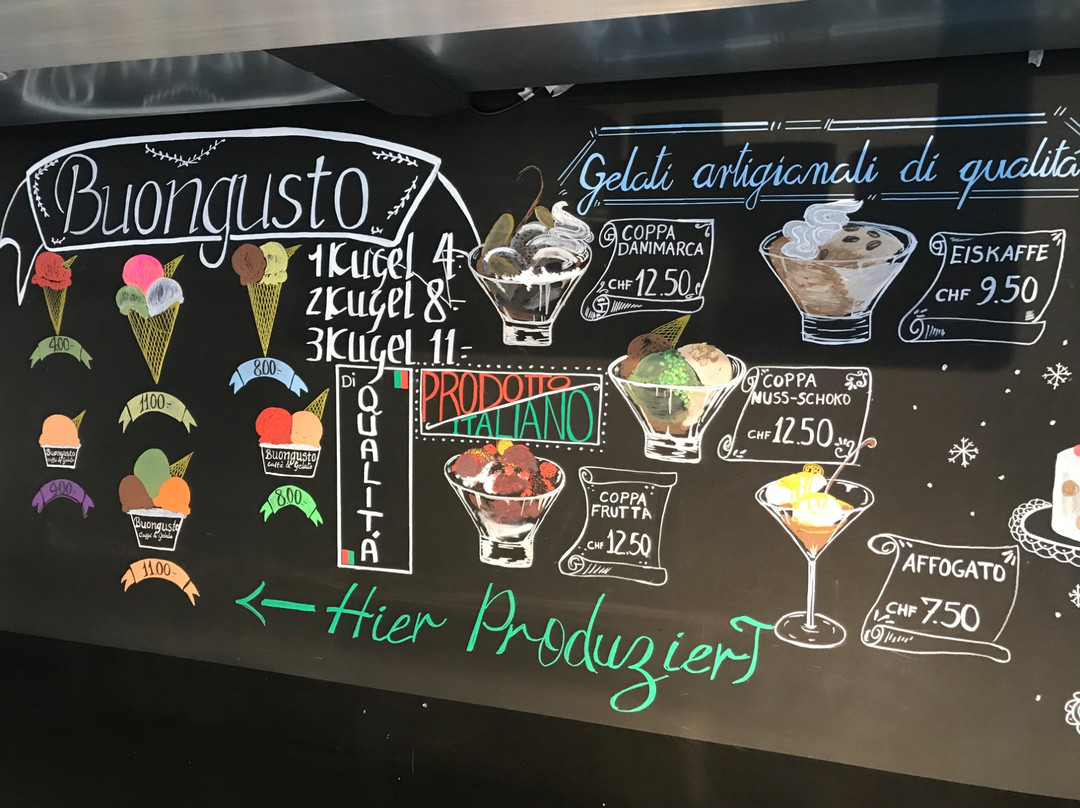 Buongusto
Gelati artigianali di qualità
1 Kugel 4.-
2 Kugel 8.-
3 Kugel 11.-
4.00.-
11.00.-
8.00.-
Buongusto
4.00.-
Buongusto
Caffé & Gelato
11.00.-
Buongusto
Caffé & Gelato
8.00.-
Di
QUALITÁ
PRODOTTO
ITALIANO
COPPA
DANIMARCA
CHF 12.50
EISKAFFE
CHF 9.50
COPPA
NUSS-SCHOKO
CHF 12.50
COPPA
FRUTTA
CHF 12.50
AFFOGATO
CHF 7.50
Hier ProduzierT